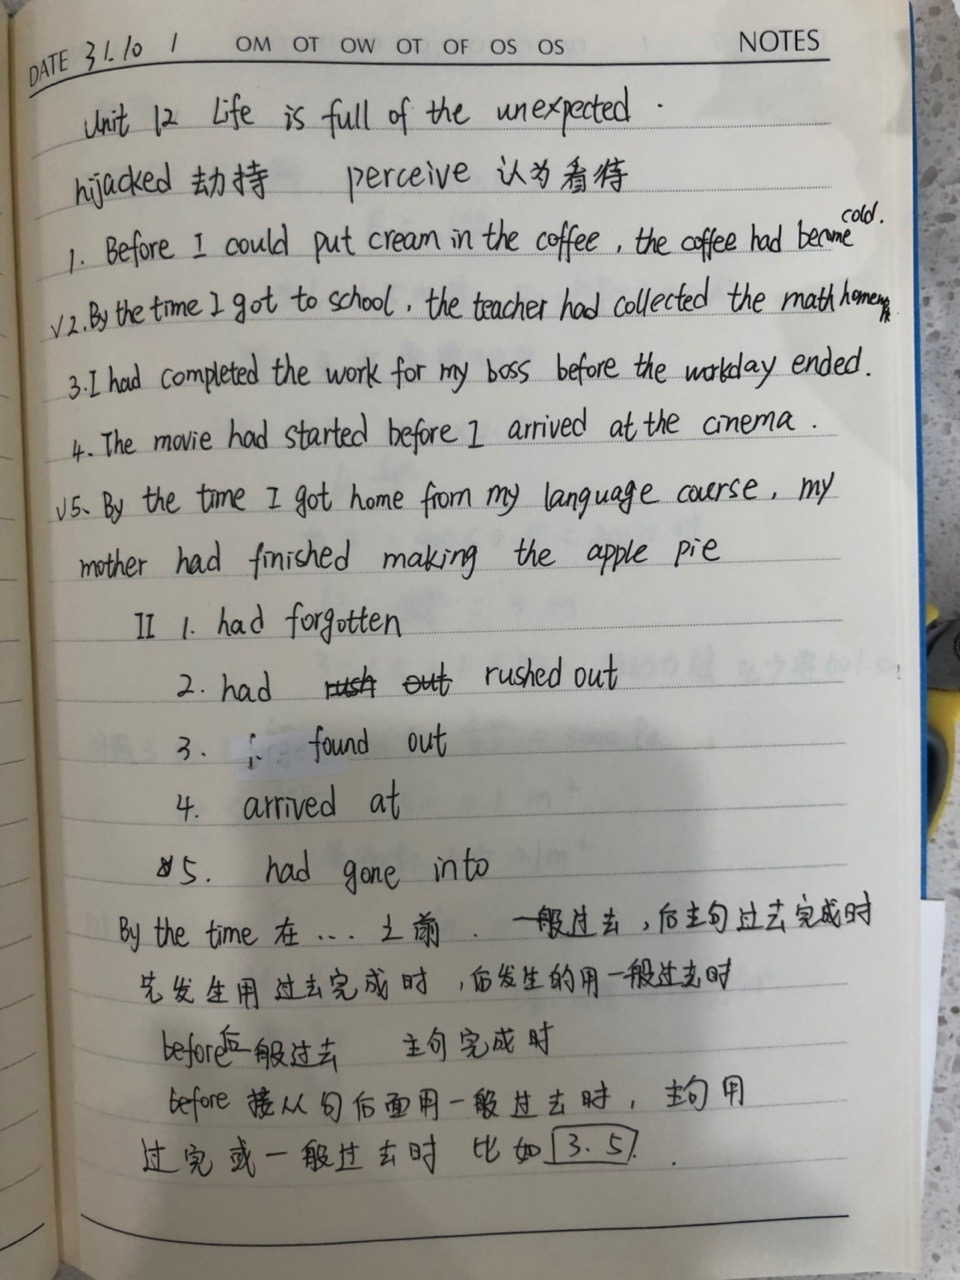 DATE 31.10 1 OM OT OW OT OF OS OS NOTES
Unit 12 Life is full of the unexpected.
hijacked 劫持 perceive 认为看待
1. Before I could put cream in the coffee, the coffee had become cold.
√2. By the time I got to school, the teacher had collected the math homework.
3. I had completed the work for my boss before the workday ended.
4. The movie had started before I arrived at the cinema.
√5、By the time I got home from my language course, my
mother had finished making the apple pie
II 1. had forgotten
2. had rush out rushed out
3. found out
4. arrived at
5. had gone into
By the time 在...之前. 一般过去,后主句过去完成时
先发生用过去完成时,后发生的用一般过去时
before后一般过去 主句完成时
before 接从句后面用一般过去时, 主句用
过完或一般过去时 比如 3. 5.